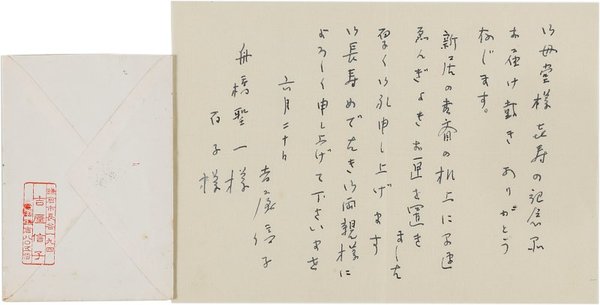 御母堂様 喜寿の記念品
お届け戴き ありがとう
存じます。
新居の書斎の机上に早速
ゑんぎよき を置きました
厚く御礼申し上げます
御長寿めでたき御両親様に
よろしく申し上げて下さいませ
六月二十日
吉屋信子
舟橋聖一様
百子様
鎌倉市長谷一九四
吉屋信子